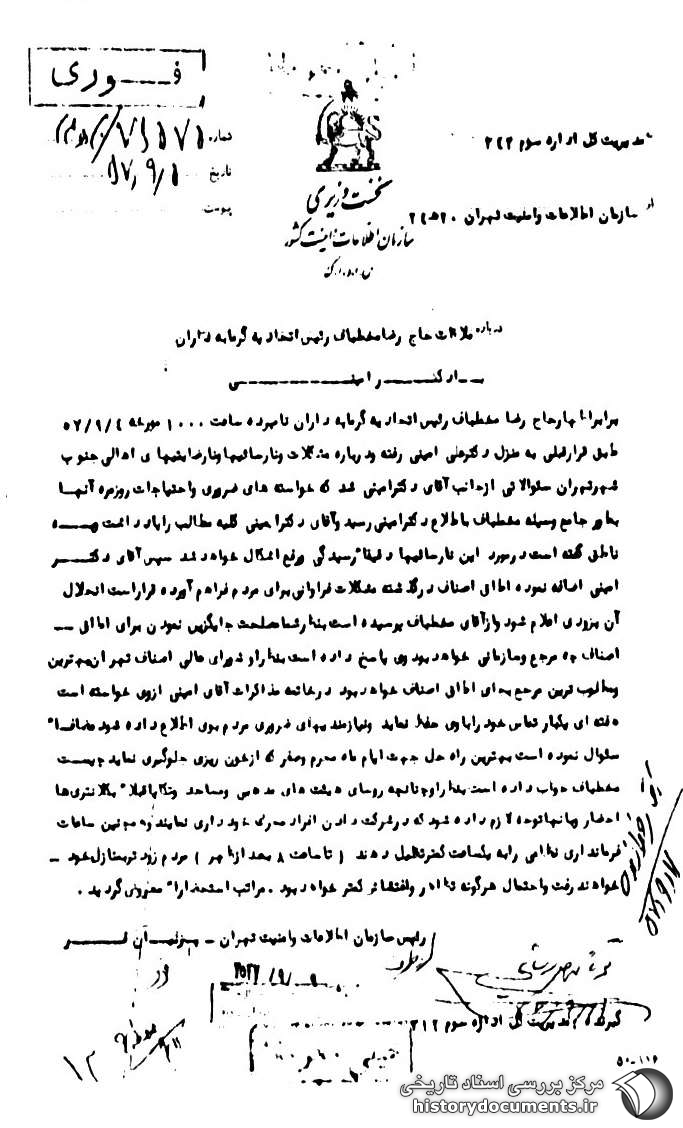 فوری
شماره
تاریخ ۵۷/۹/۵
پیوست
نخست وزیری
سازمان اطلاعات و امنیت کشور
مدیریت کل اداره سوم ۳۱۲
از سازمان اطلاعات وامنیت تهران ۲۰ه۲۴
درباره ملاقات حاج رضا مخطباف رئیس اتحادیه گرمابه داران
با دکتر امینی
برابر اظهار حاج رضا مخطباف رئیس اتحادیه گرمابه داران نامبرده ساعت ۱۰۰۰ مورخه ۵۷/۹/۴
طبق قرارقبلی به منزل دکترعلی امینی رفته ودرباره مشکلات ونارسائیها ونارضایتیهای اهالی جنوب
شهرتهران سئوالاتی ازجانب آقای دکترامینی شد که خواسته های ضروری واحتیاجات روزمره آنها
بطور جامع وسیله مخطباف باطلاع دکترامینی رسید وآقای دکترامینی کلیه مطالب رایادداشت و به
ناطق گفته است درمورد این نارسائیها دقیقا" رسیدگی ورفع اشکال خواهد شد سپس آقای دکتر
امینی اضافه نموده اطاق اصناف درگذشته مشکلات فراوانی برای مردم فراهم آورده قراراست انحلال
آن بزودی اعلام شود وازآقای مخطباف پرسیده است بنظرشما مصلحت جایگزین نمودن برای اطاق
اصناف چه مرجع وسازمانی خواهد بود وی پاسخ داده است بنظراو شورای عالی اصناف تهران بهترین
ومطلوب ترین مرجع بجای اطاق اصناف خواهد بود درخاتمه مذاکرات آقای امینی ازوی خواسته است
هفته ای یکبار تماس خود راباوی حفظ نماید ونیازمندیهای ضروری مردم بوی اطلاع داده شود مضافا"
سئوال نموده است بهترین راه حل جهت ایام ماه محرم وصفر که ازخون ریزی جلوگیری نماید چیست
مخطباف جواب داده است بنظراو چنانچه روسای هیئت های مذهبی ومساجد وتکایا قبلا" بکلانتری‌ها
احضار وبآنها توجه لازم داده شود که درشرکت دادن افراد محرک خودداری نمایند وهمچنین ساعات
فرمانداری نظامی رابه یکساعت کمتر تقلیل دهند (تا ساعت ۸ بعد ازظهر) مردم زودتر بمنازل خود
خواهند رفت واحتمال هرگونه تظاهر واغتشاش کمتر خواهد بود . مراتب استحضارا" معروض گردید .
رئیس سازمان اطلاعات وامنیت تهران -
گیرنده مدیریت کل اداره سوم ۳۱۲
۵۰-۱۱۶
مرکز بررسی اسناد تاریخی
historydocuments.ir